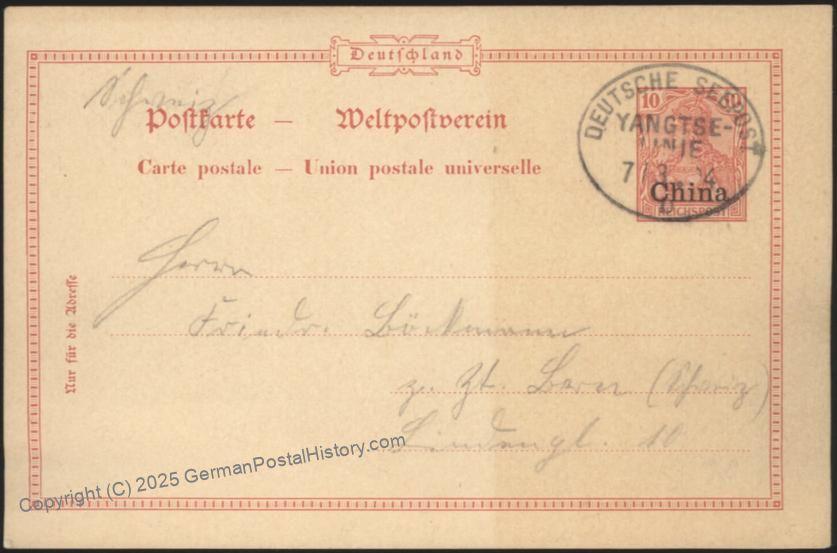 Deutschland
Schweiz
Postkarte — Weltpostverein
Carte postale — Union postale universelle
10 10
REICHSPOST
China
DEUTSCHE SEEPOST
YANGTSE-
LINIE
7/3 04
Herrn
Friedr. Böckmann
z. Zt. Bern (Schweiz)
10
Nur für die Adresse
Copyright (C) 2025 GermanPostalHistory.com